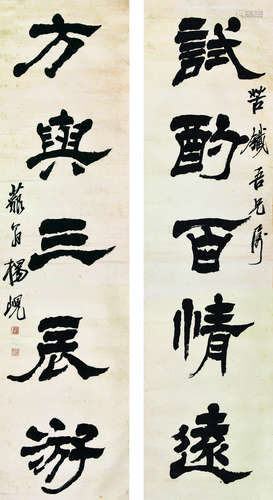 苦鐵吾兄屬
試酌百情遠
方與三辰游
藐翁楊峴